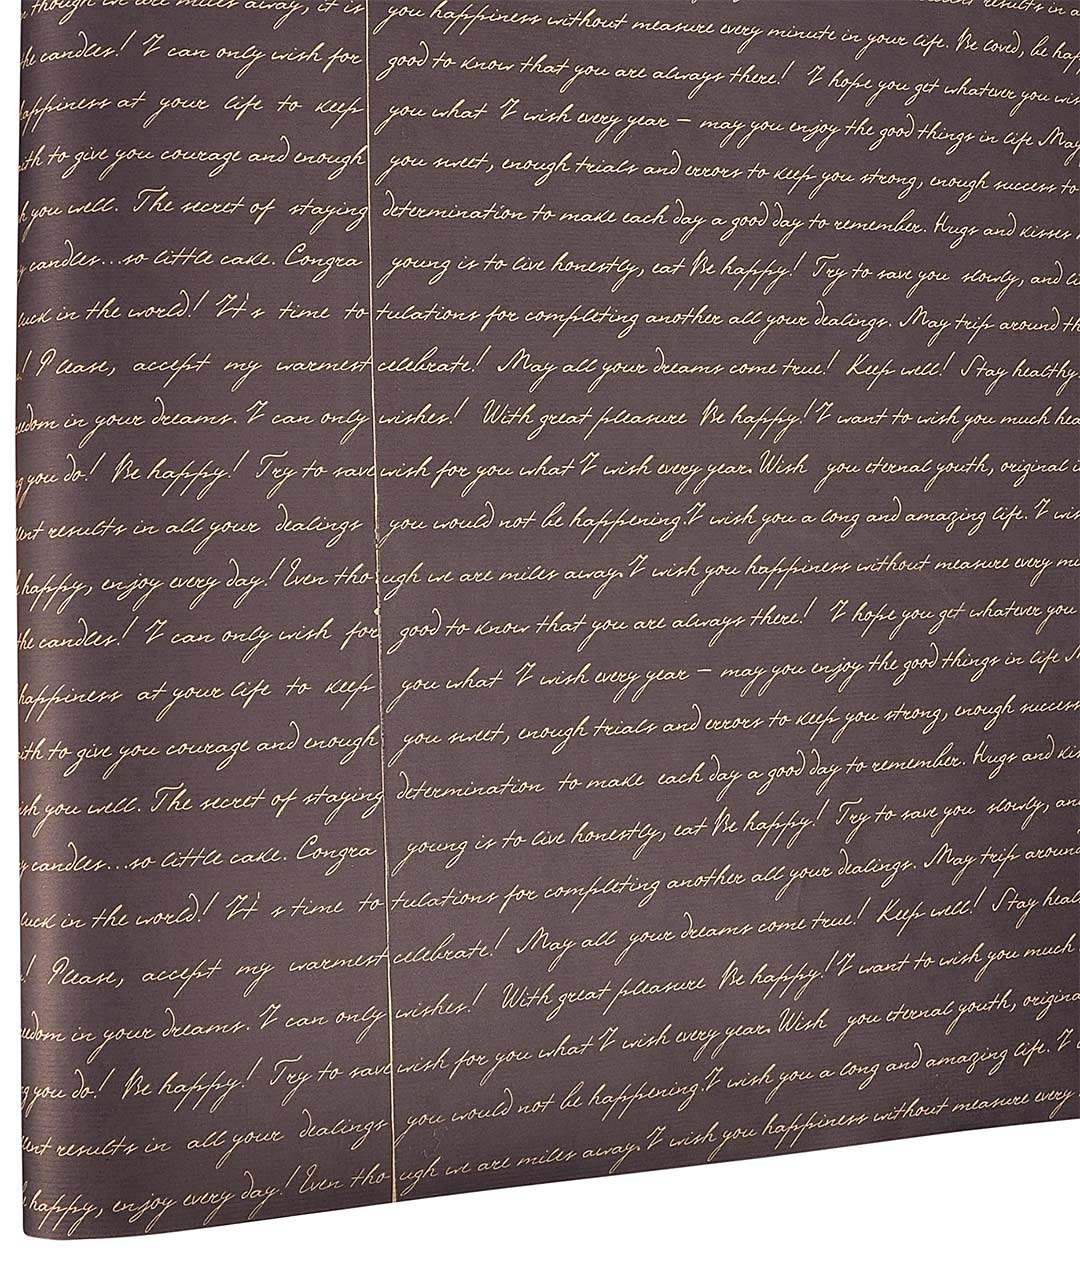 though we are miles away, it is you happiness without measure every minute in your life. Be loved, be hap
the candles! I can only wish for good to know that you are always there! I hope you get whatever you wis
happiness at your life to keep you what I wish every year – may you enjoy the good things in life May
ith to give you courage and enough you sweet, enough trials and errors to keep you strong, enough success to
h you well. The secret of staying determination to make each day a good day to remember. Hugs and kisses
y candles...so little cake. Congra young is to live honestly, eat Be happy! Try to save you slowly, and li
luck in the world! It's time to tulations for completing another all your dealings. May trip around th
! Please, accept my warmest celebrate! May all your dreams come true! Keep well! Stay healthy.
edom in your dreams. I can only wishes! With great pleasure Be happy! I want to wish you much hea
g you do! Be happy! Try to save wish for you what I wish every year. Wish you eternal youth, original i
lent results in all your dealings you would not be happening. I wish you a long and amazing life. I wis
happy, enjoy every day! Even tho ugh we are miles away. I wish you happiness without measure every mi
the candles! I can only wish for good to know that you are always there! I hope you get whatever you
happiness at your life to keep you what I wish every year – may you enjoy the good things in life M
ith to give you courage and enough you sweet, enough trials and errors to keep you strong, enough success
sh you well. The secret of staying determination to make each day a good day to remember. Hugs and kis
y candles...so little cake. Congra young is to live honestly, eat Be happy! Try to save you slowly, and
luck in the world! It's time to tulations for completing another all your dealings. May trip around
! Please, accept my warmest celebrate! May all your dreams come true! Keep well! Stay heal
edom in your dreams. I can only wishes! With great pleasure Be happy! I want to wish you much
g you do! Be happy! Try to save wish for you what I wish every year. Wish you eternal youth, origina
lent results in all your dealings you would not be happening. I wish you a long and amazing life. I
happy, enjoy every day! Even tho ugh we are miles away. I wish you happiness without measure every